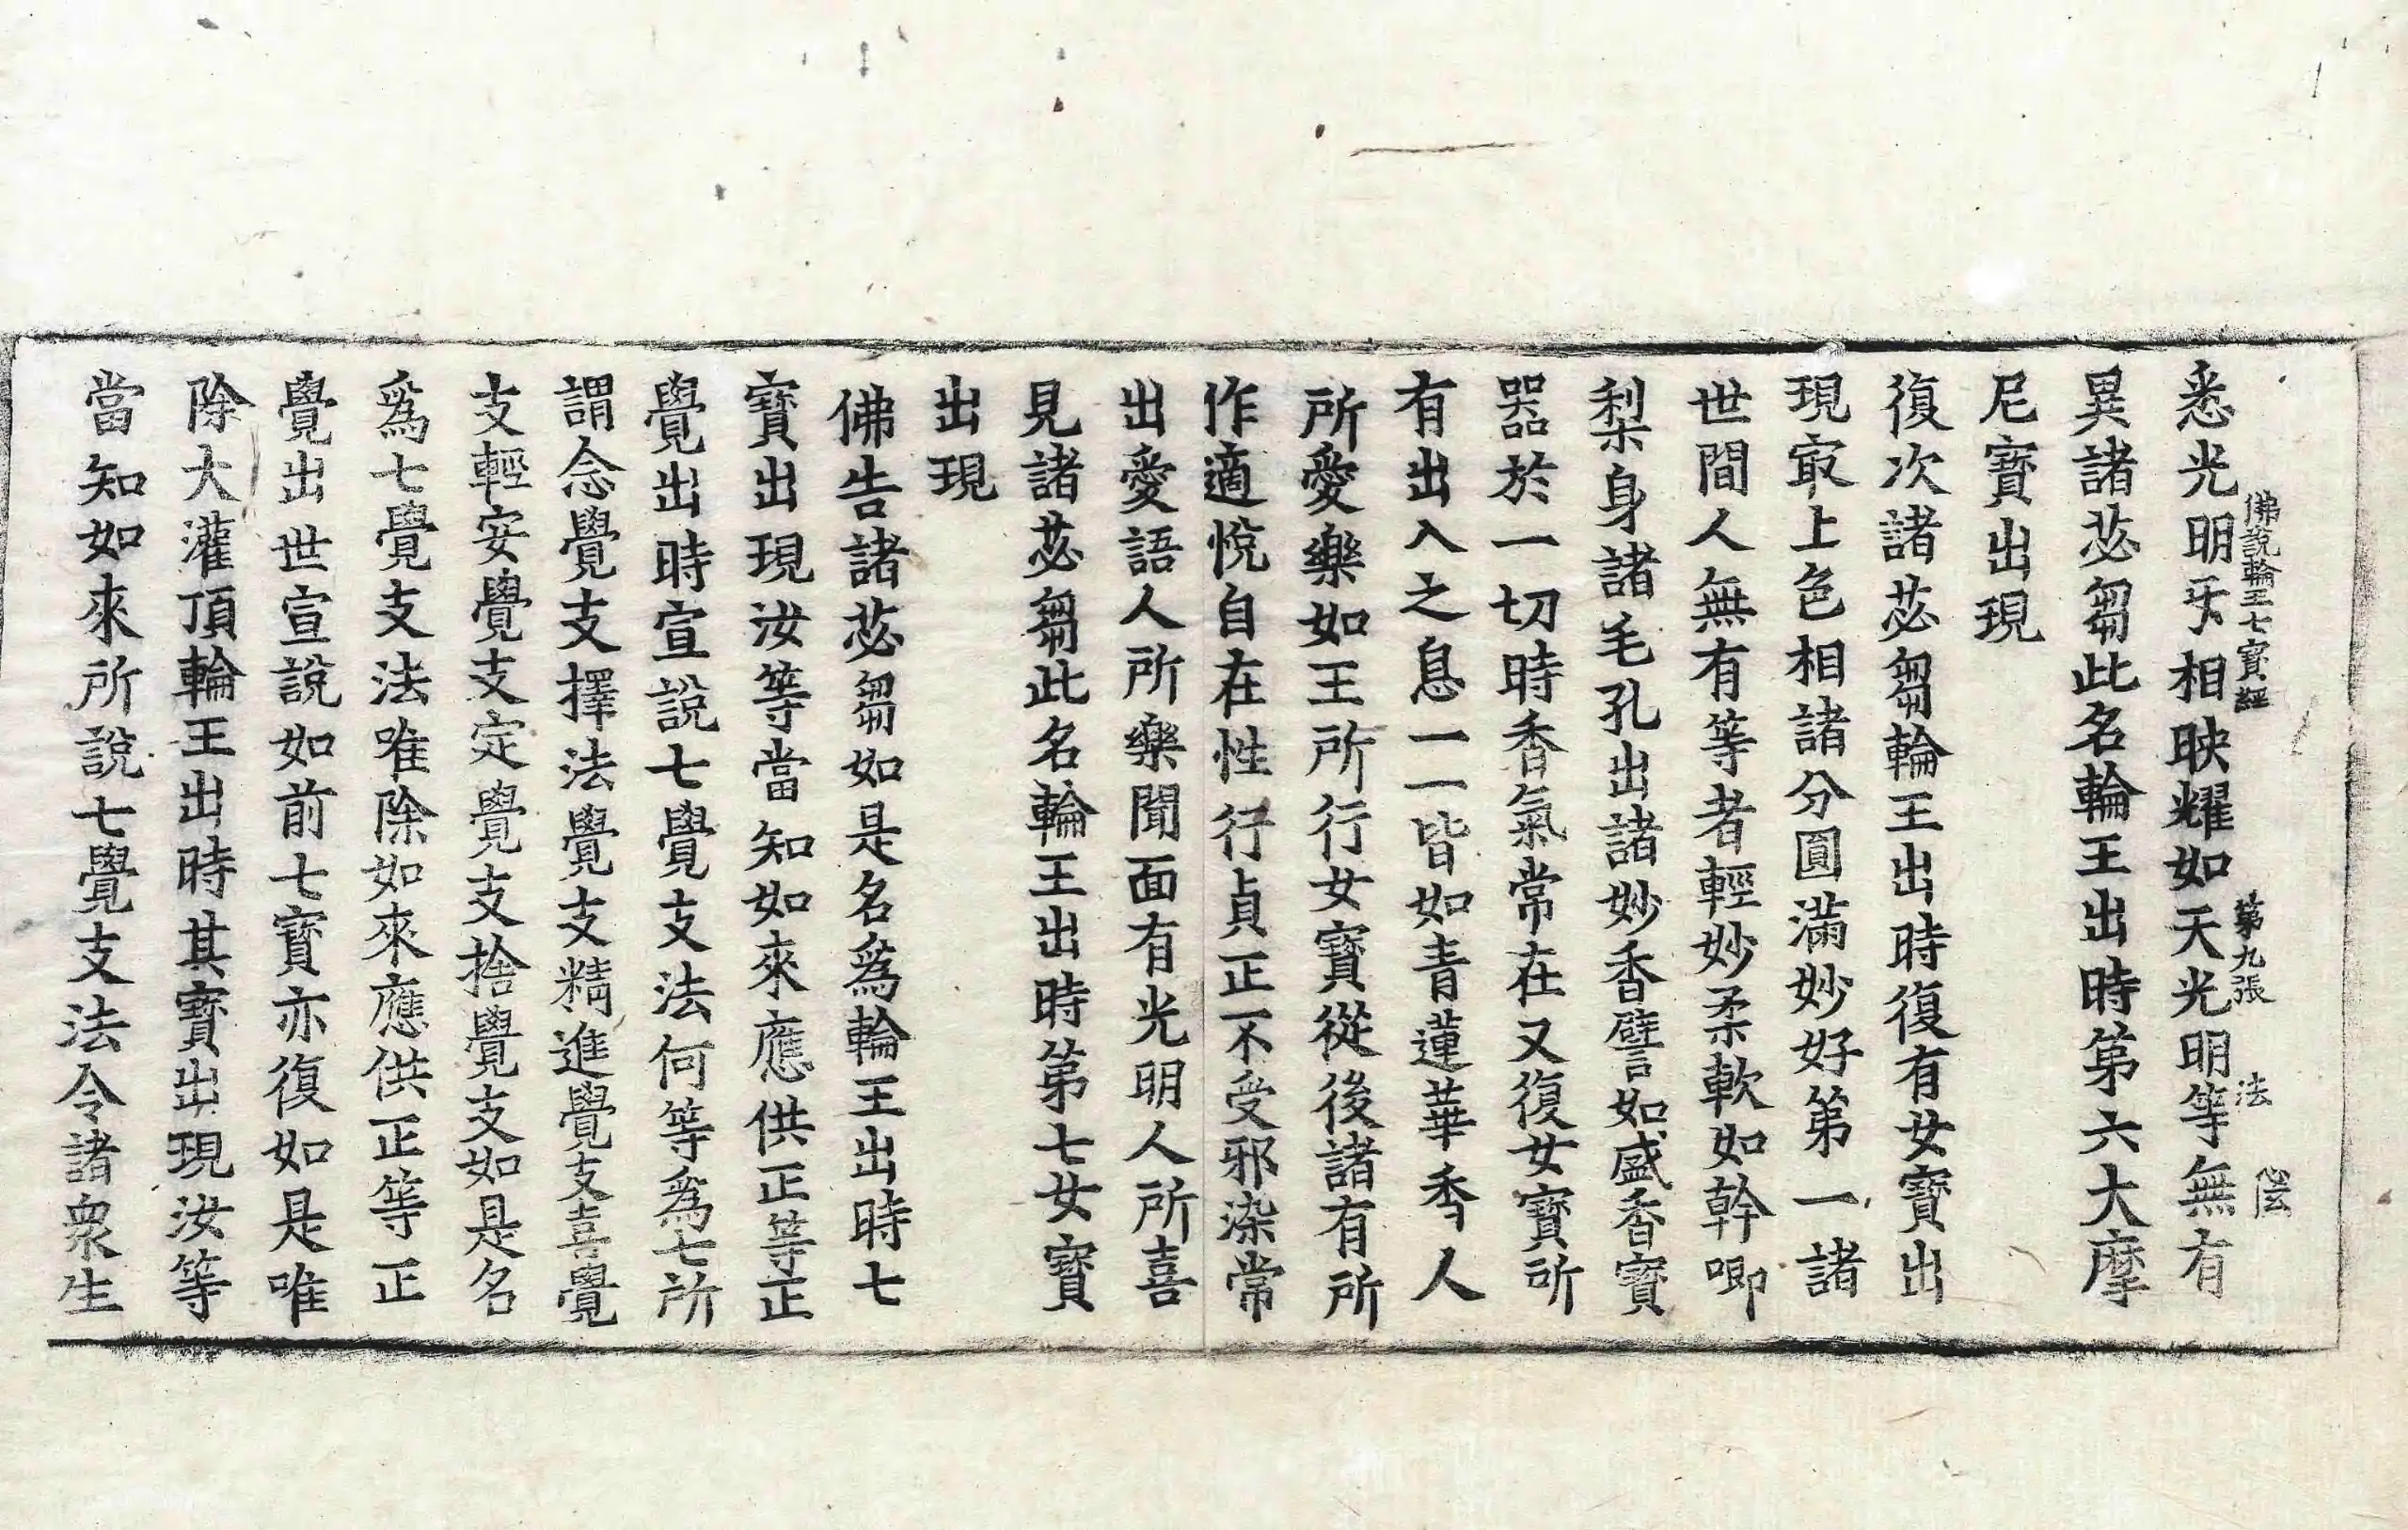 佛說輪王七寶經　第九張　法
悉光明𤓰相映耀如天光明等無有
異諸苾芻此名輪王出時第六大摩
尼寶出現
復次諸苾芻輪王出時復有女寶出
現冣上色相諸分圓滿妙好第一諸
世間人無有等者輕妙柔軟如幹唧
梨身諸毛孔出諸妙香譬如盛香寶
器於一切時香氣常在又復女寶所
有出入之息一一皆如青蓮華香人
所愛樂如王所行女寶從後諸有所
作適悅自在性行貞正不受邪染常
出愛語人所樂聞面有光明人所喜
見諸苾芻此名輪王出時第七女寶
出現
佛告諸苾芻如是名爲輪王出時七
寶出現汝等當知如來應供正等正
覺出時宣說七覺支法何等爲七所
謂念覺支擇法覺支精進覺支喜覺
支輕安覺支定覺支捨覺支如是名
爲七覺支法唯除如來應供正等正
覺出世宣說如前七寶亦復如是唯
除大灌頂輪王出時其寶出現汝等
當知如來所說七覺支法令諸衆生